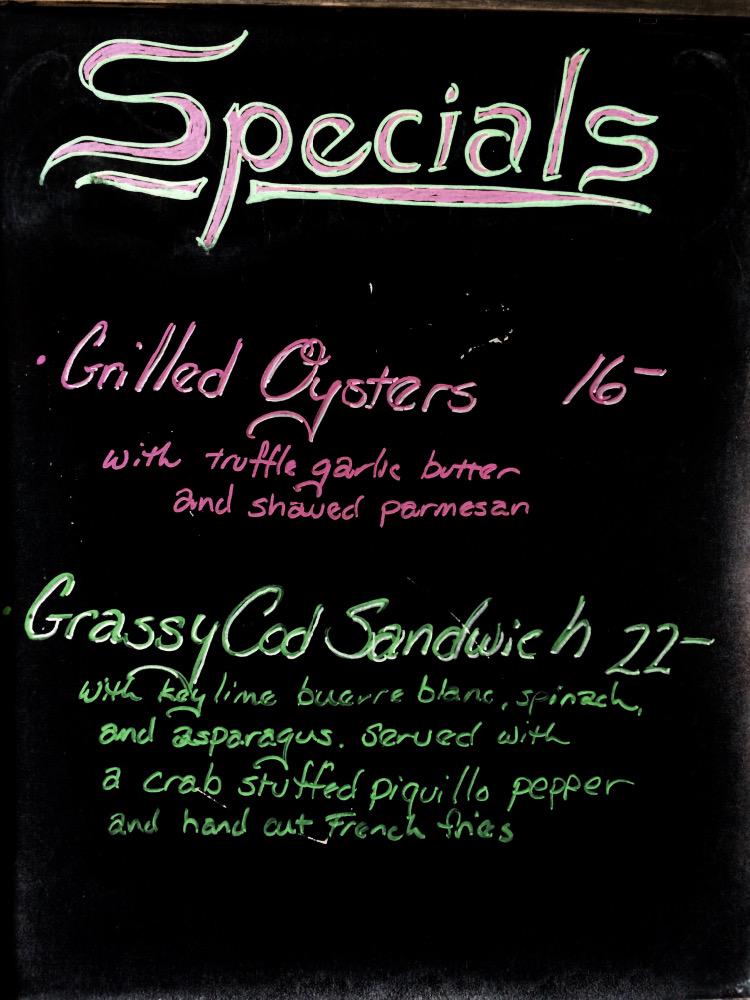 Specials
· Grilled Oysters 16-
with truffle garlic butter
and shaved parmesan
· Grassy Cod Sandwich 22-
with key lime buerre blanc, spinach,
and asparagus. served with
a crab stuffed piquillo pepper
and hand cut French fries